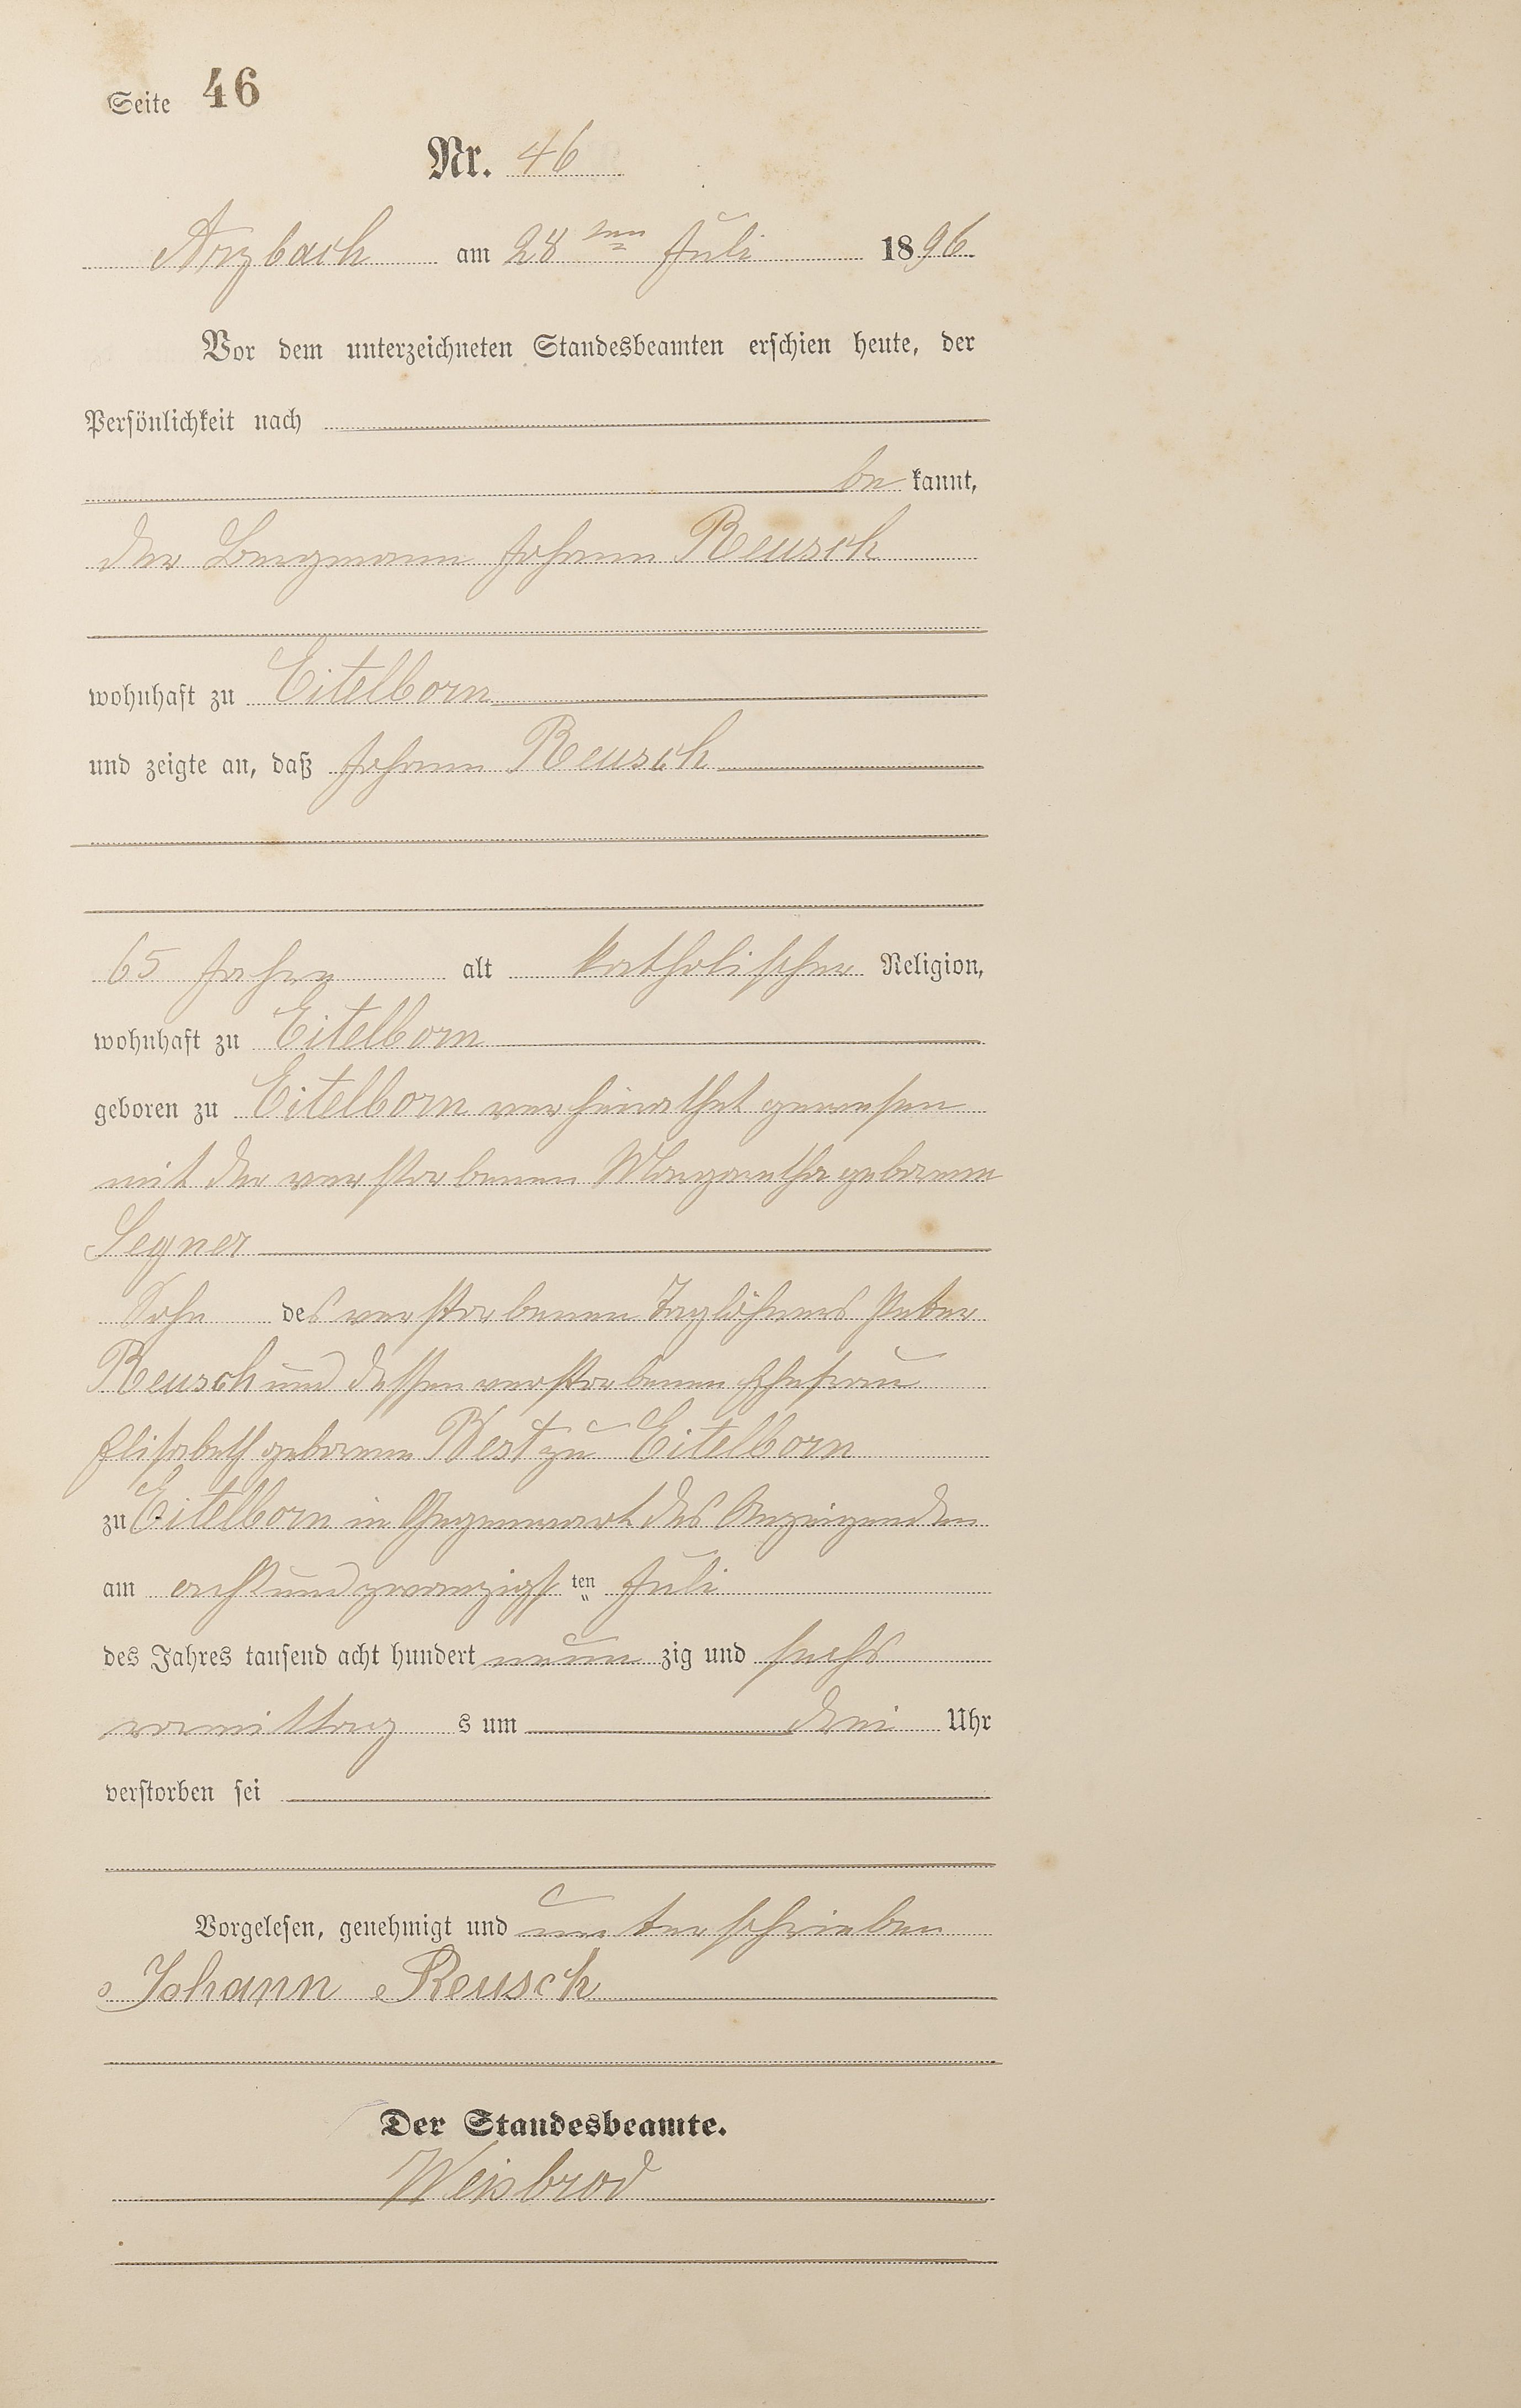 Seite 46
Nr. 46
Arzbach am 28ten Juli 1896.
Vor dem unterzeichneten Standesbeamten erschien heute, der
Persönlichkeit nach
be kannt,
der Bergmann Johann Reusch
wohnhaft zu Eitelborn
und zeigte an, daß Johann Reusch
65 Jahre alt katholischer Religion,
wohnhaft zu Eitelborn
geboren zu Eitelborn verheirathet gewesen
mit der verstorbenen Margaretha geborenen
Legner
Sohn des verstorbenen Taglöhners Peter
Reusch und dessen verstorbenen Ehefrau
Elisabeth geborenen Best zu Eitelborn
zu Eitelborn in Gegenwart des Anzeigenden
am achtundzwanzigsten Juli
des Jahres tausend acht hundert neun zig und sechs
vormittag s um drei Uhr
verstorben sei
Vorgelesen, genehmigt und unterschrieben
Johann Reusch
Der Standesbeamte.
Weisbrod